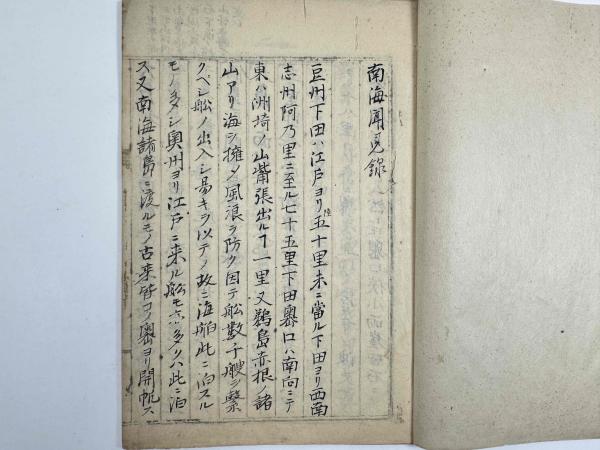 南海聞見録
一豆州下田ハ江戸ヨリ陸五十里未ニ當ル下田ヨリ西南
志州阿乃里ニ至ル七十五里下田嶴口ハ南向ニテ
東ハ洲埼ノ山觜張出ルヿ一里又鵜島赤根ノ諸
山アリ海ヲ擁シ風浪ヲ防ク因テ船数千艘ヲ繋
クベシ船ノ出入シ易キヲ以テノ故ニ海舶此ニ泊スル
モノ多シ奥州ヨリ江戸ニ来ル船モ亦多クハ此ニ泊
ス又南海諸島ニ渡ルモノ古来皆コノ嶴ヨリ開帆ス